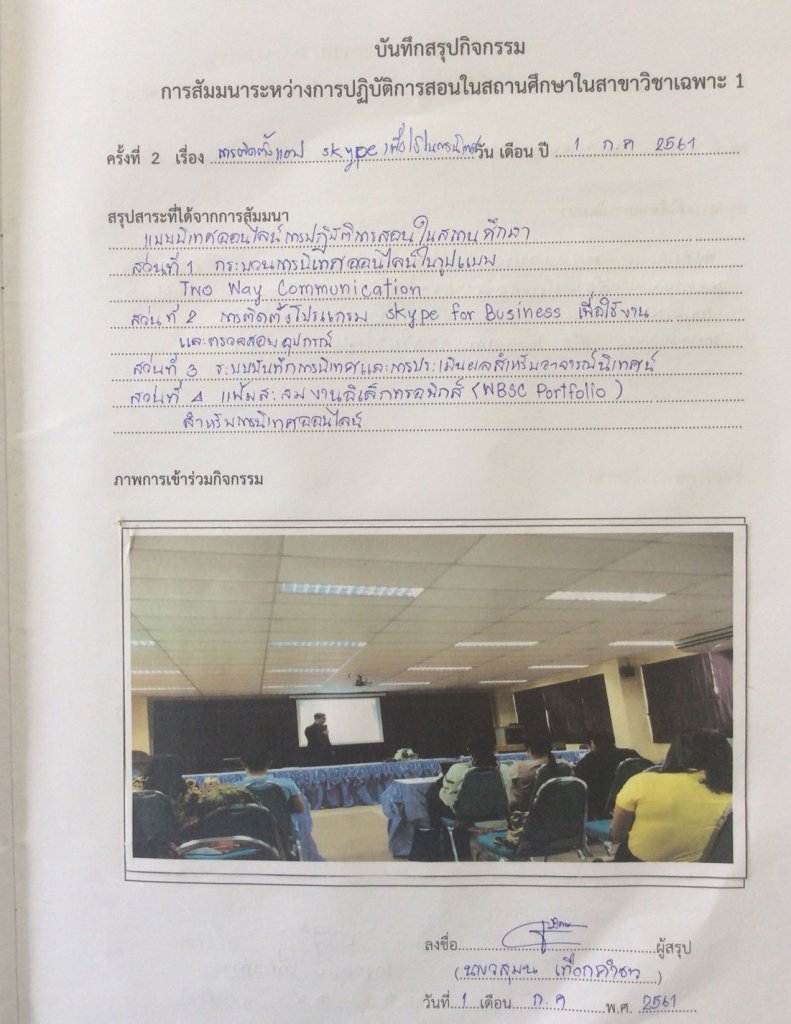 บันทึกสรุปกิจกรรม
การสัมมนาระหว่างการปฏิบัติการสอนในสถานศึกษาในสาขาวิชาเฉพาะ 1
ครั้งที่ 2 เรื่อง การติดตั้งแอป skype เพื่อใช้ในการนิเทศ วัน เดือน ปี 1 ก.ค 2561
สรุปสาระที่ได้จากการสัมมนา
แบบนิเทศออนไลน์การปฏิบัติการสอนในสถานศึกษา
ส่วนที่ 1 กระบวนการนิเทศออนไลน์ในรูปแบบ
Two Way Communication
ส่วนที่ 2 การติดตั้งโปรแกรม skype for Business เพื่อใช้งาน
และตรวจสอบอุปกรณ์
ส่วนที่ 3 ระบบบันทึกการนิเทศและการประเมินผลสำหรับอาจารย์นิเทศน์
ส่วนที่ 4 แฟ้มสะสมงานอิเล็กทรอนิกส์ (WBSC Portfolio)
สำหรับการนิเทศออนไลน์
ภาพการเข้าร่วมกิจกรรม
ลงชื่อ ผู้สรุป
(นางวสุมน )
วันที่ 1 เดือน ก.ค พ.ศ. 2561